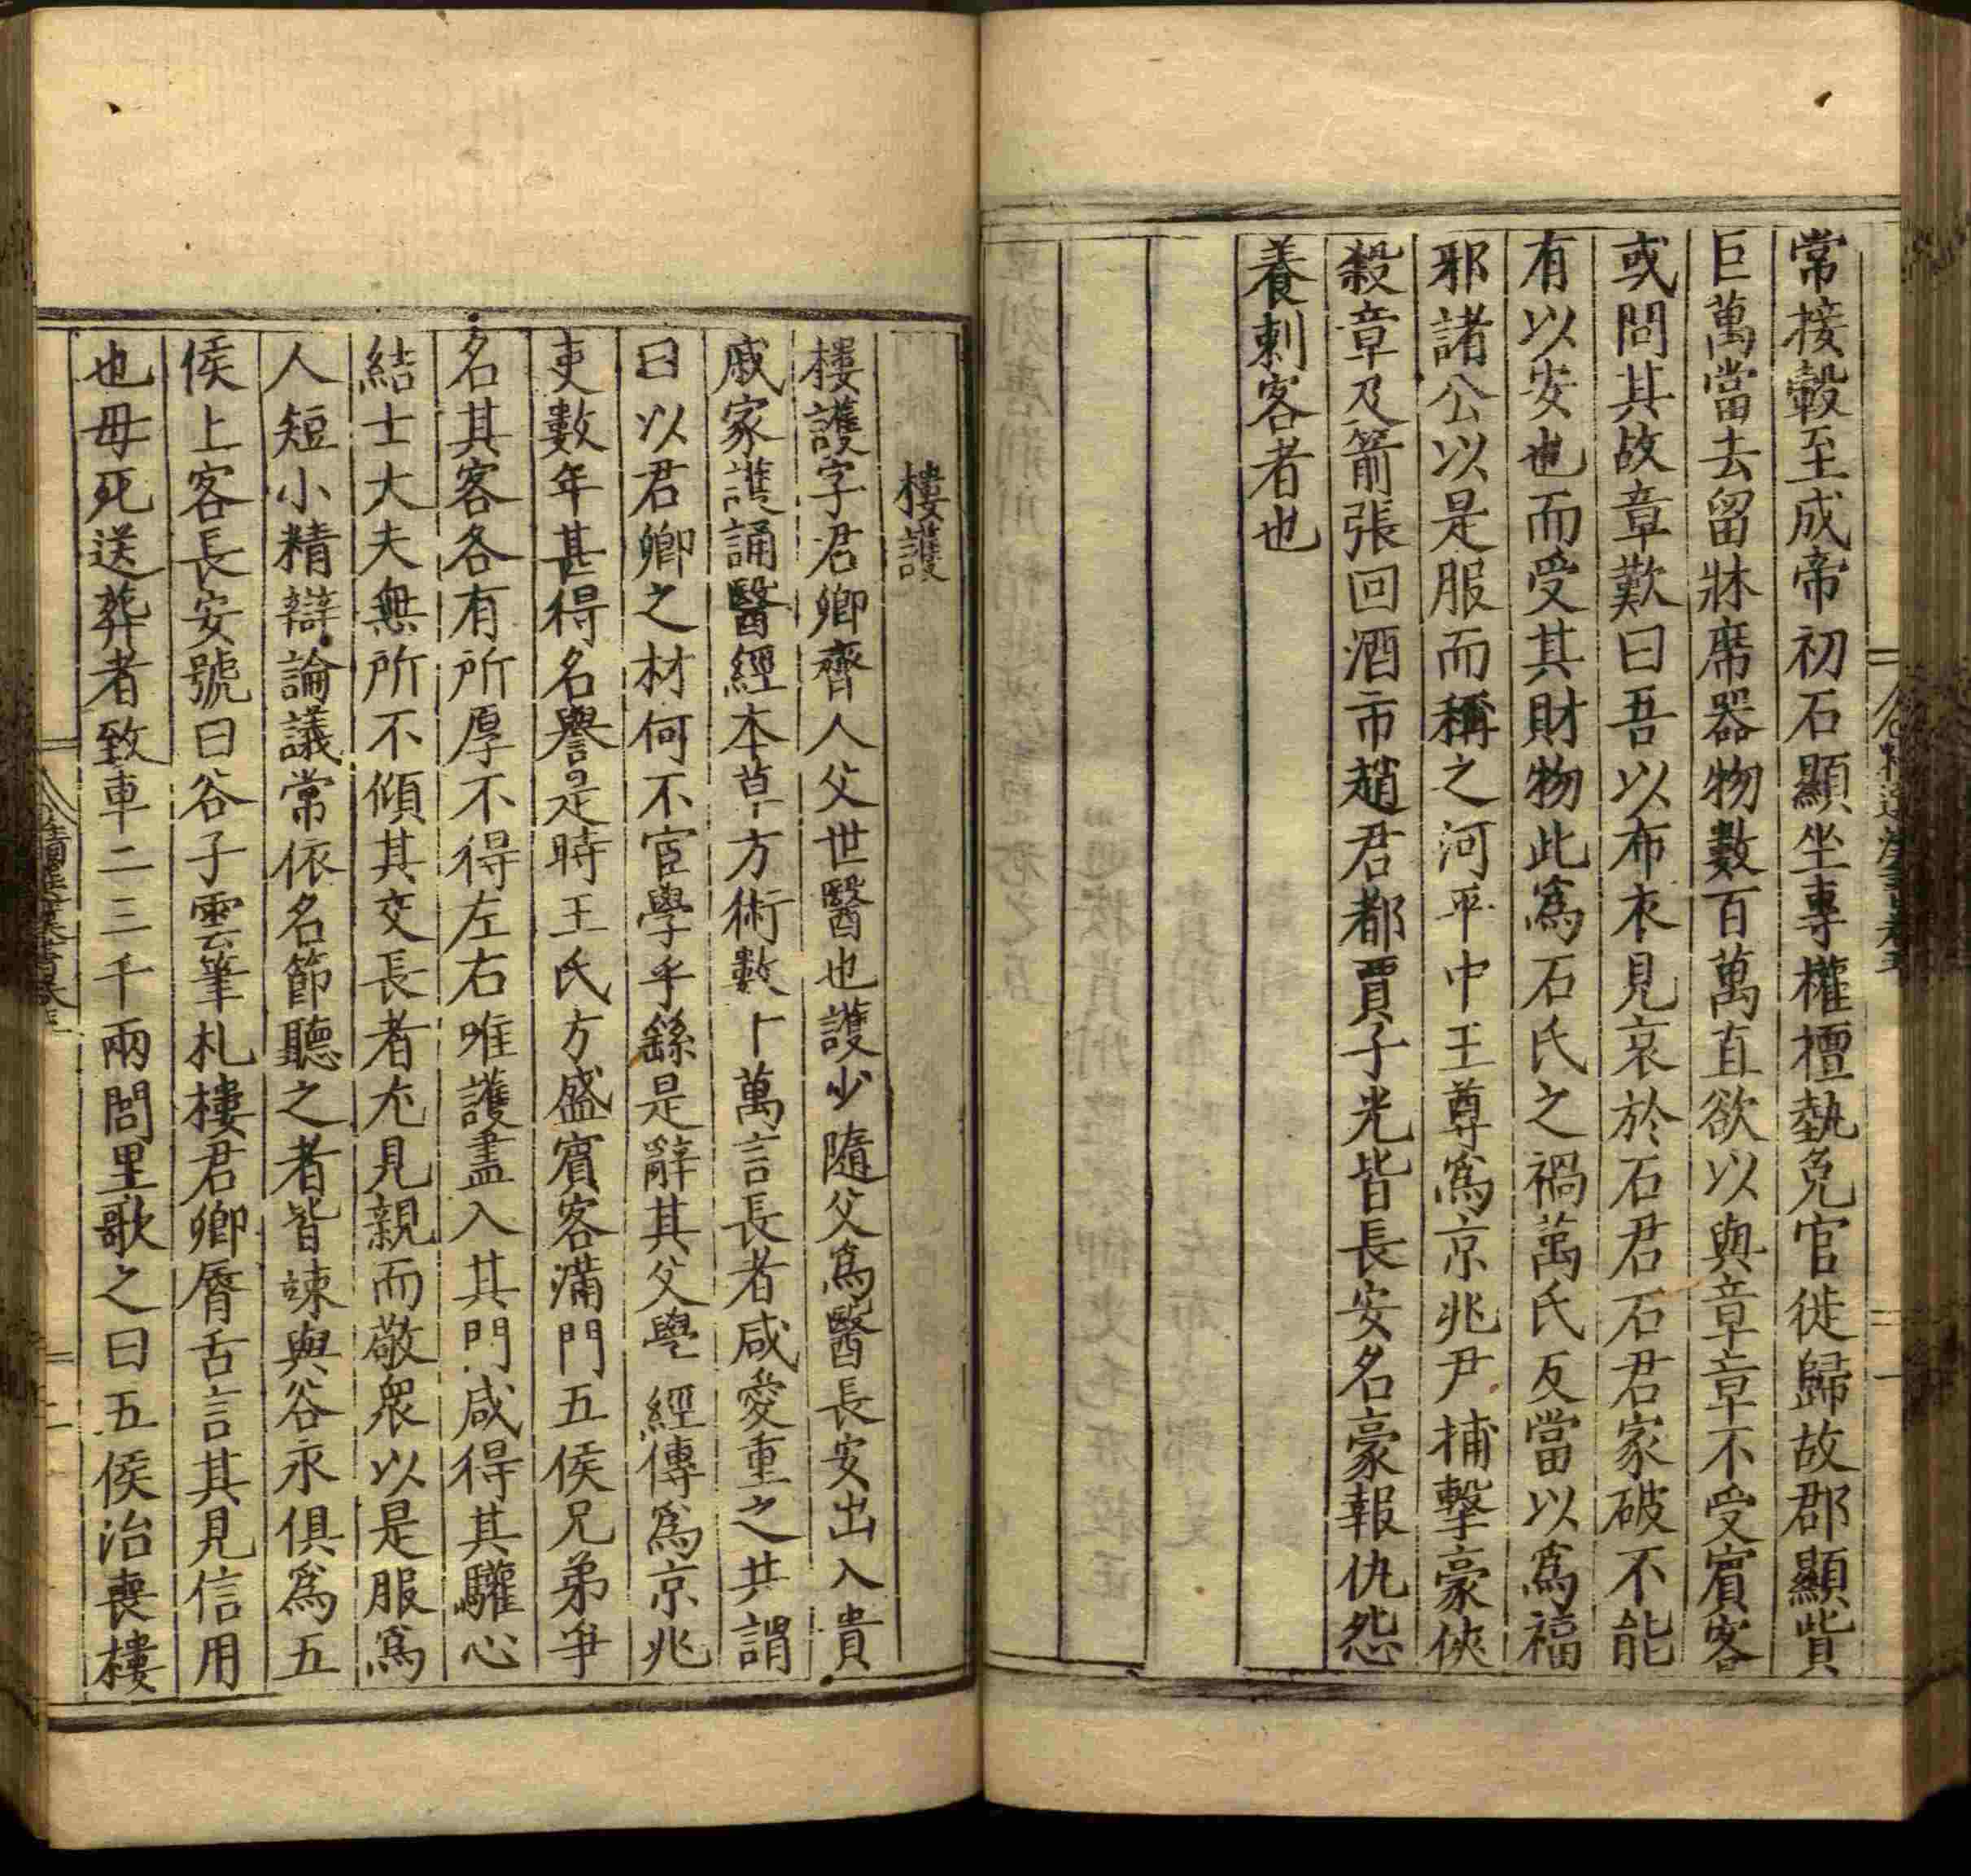 常接轂至成帝初石顯坐專權擅埶免官徙歸故郡顯貲
巨萬當去留牀席器物數百萬直欲以與章章不受賓客
或問其故章歎曰吾以布衣見哀於石君石君家破不能
有以安也而受其財物此爲石氏之禍萬氏反當以爲福
邪諸公以是服而稱之河平中王尊爲京兆尹捕擊豪俠
殺章及箭張回酒市趙君都賈子光皆長安名豪報仇怨
養刺客者也
樓護
樓護字君卿齊人父世醫也護少隨父爲醫長安出入貴
戚家護誦醫經本草方術數十萬言長者咸愛重之共謂
曰以君卿之材何不宦學乎繇是辭其父學經傳爲京兆
吏數年甚得名譽是時王氏方盛賓客滿門五侯兄弟爭
名其客各有所厚不得左右唯護盡入其門咸得其驩心
結士大夫無所不傾其交長者尤見親而敬衆以是服爲
人短小精辯論議常依名節聽之者皆竦與谷永俱爲五
侯上客長安號曰谷子雲筆札樓君卿脣舌言其見信用
也母死送葬者致車二三千兩閭里歌之曰五侯治喪樓